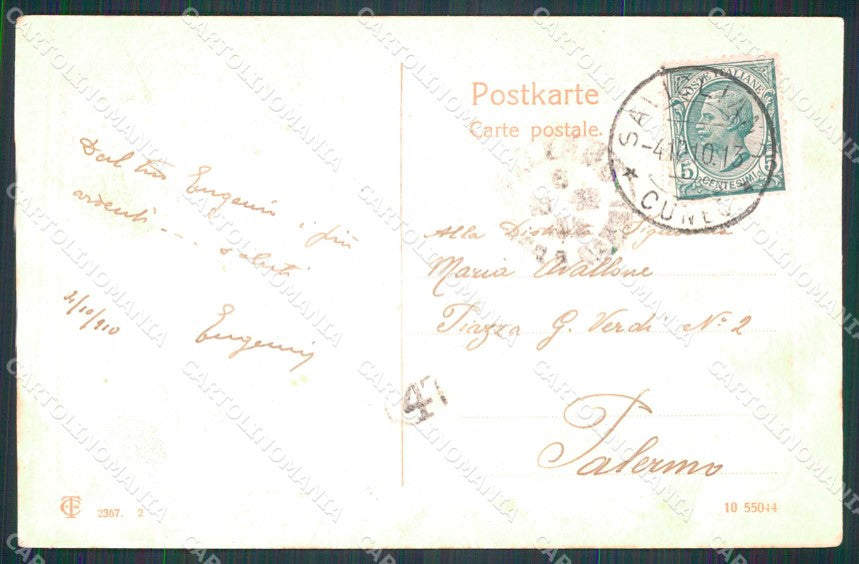 Postkarte
Carte postale.
POSTE ITALIANE
CENTESIMI
CUNEO
Dal tuo Eugenio i più
ardenti ... saluti
4/10/910
Eugenio
Alla Distinta Signorina
Maria Avallone
Piazza G. Verdi N.º 2
Palermo
47
2367. 2
10 55044
CARTOLINOMANIA